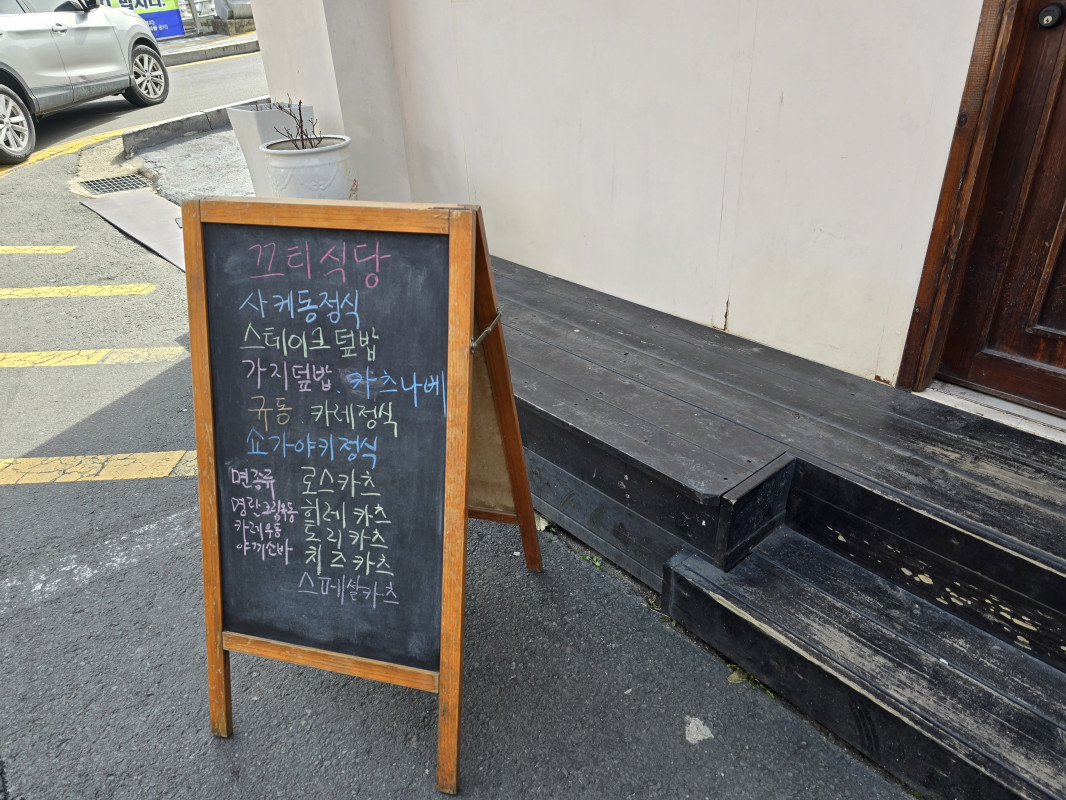 끄티식당
사케동정식
스테이크덮밥
가지덮밥. 카츠나베
규동. 카레정식
쇼가야키정식
면종류 로스카츠
명란크림우동 히레카츠
카레우동 토리카츠
야끼소바 치즈카츠
스페셜카츠